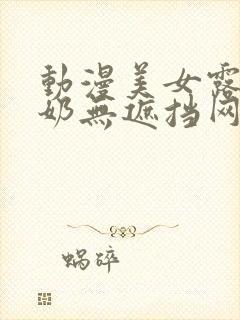 動漫美女露
奶無遮挡网
蜗碎